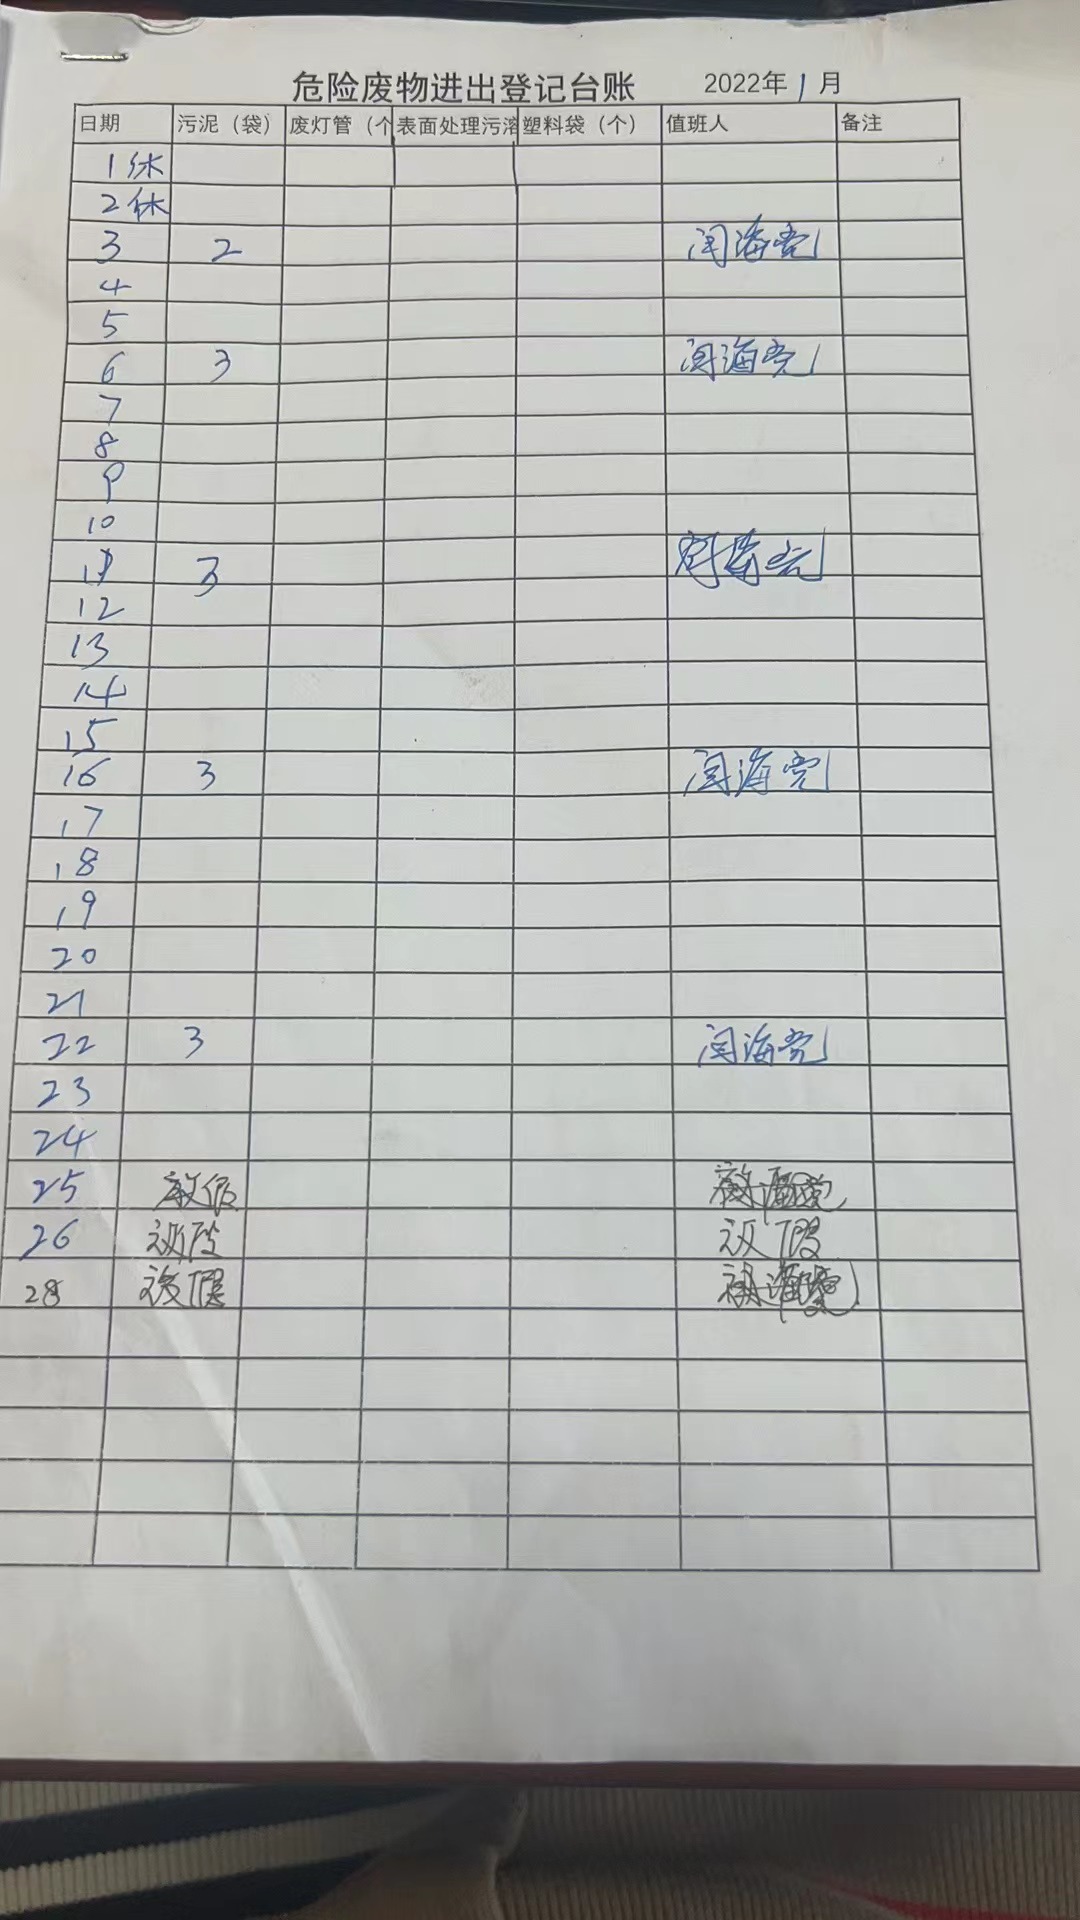 危险废物进出登记台账 2022年1月
日期 污泥（袋） 废灯管（个 表面处理污溶 塑料袋（个） 值班人 备注
1 休
2 休
3 2 闫海亮
4
5
6 3 闫海亮
7
8
9
10
11 3
12
13
14
15
16 3 闫海亮
17
18
19
20
21
22 3 闫海亮
23
24
25 放假
26 放假 放假
28 放假